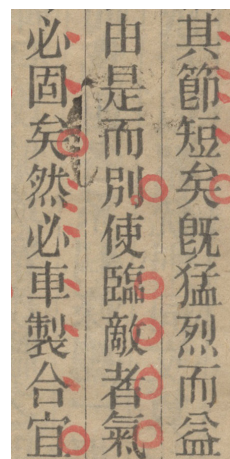 其節短矣既猛烈而益
由是而別使臨敵者氣
必固矣然必車製合宜